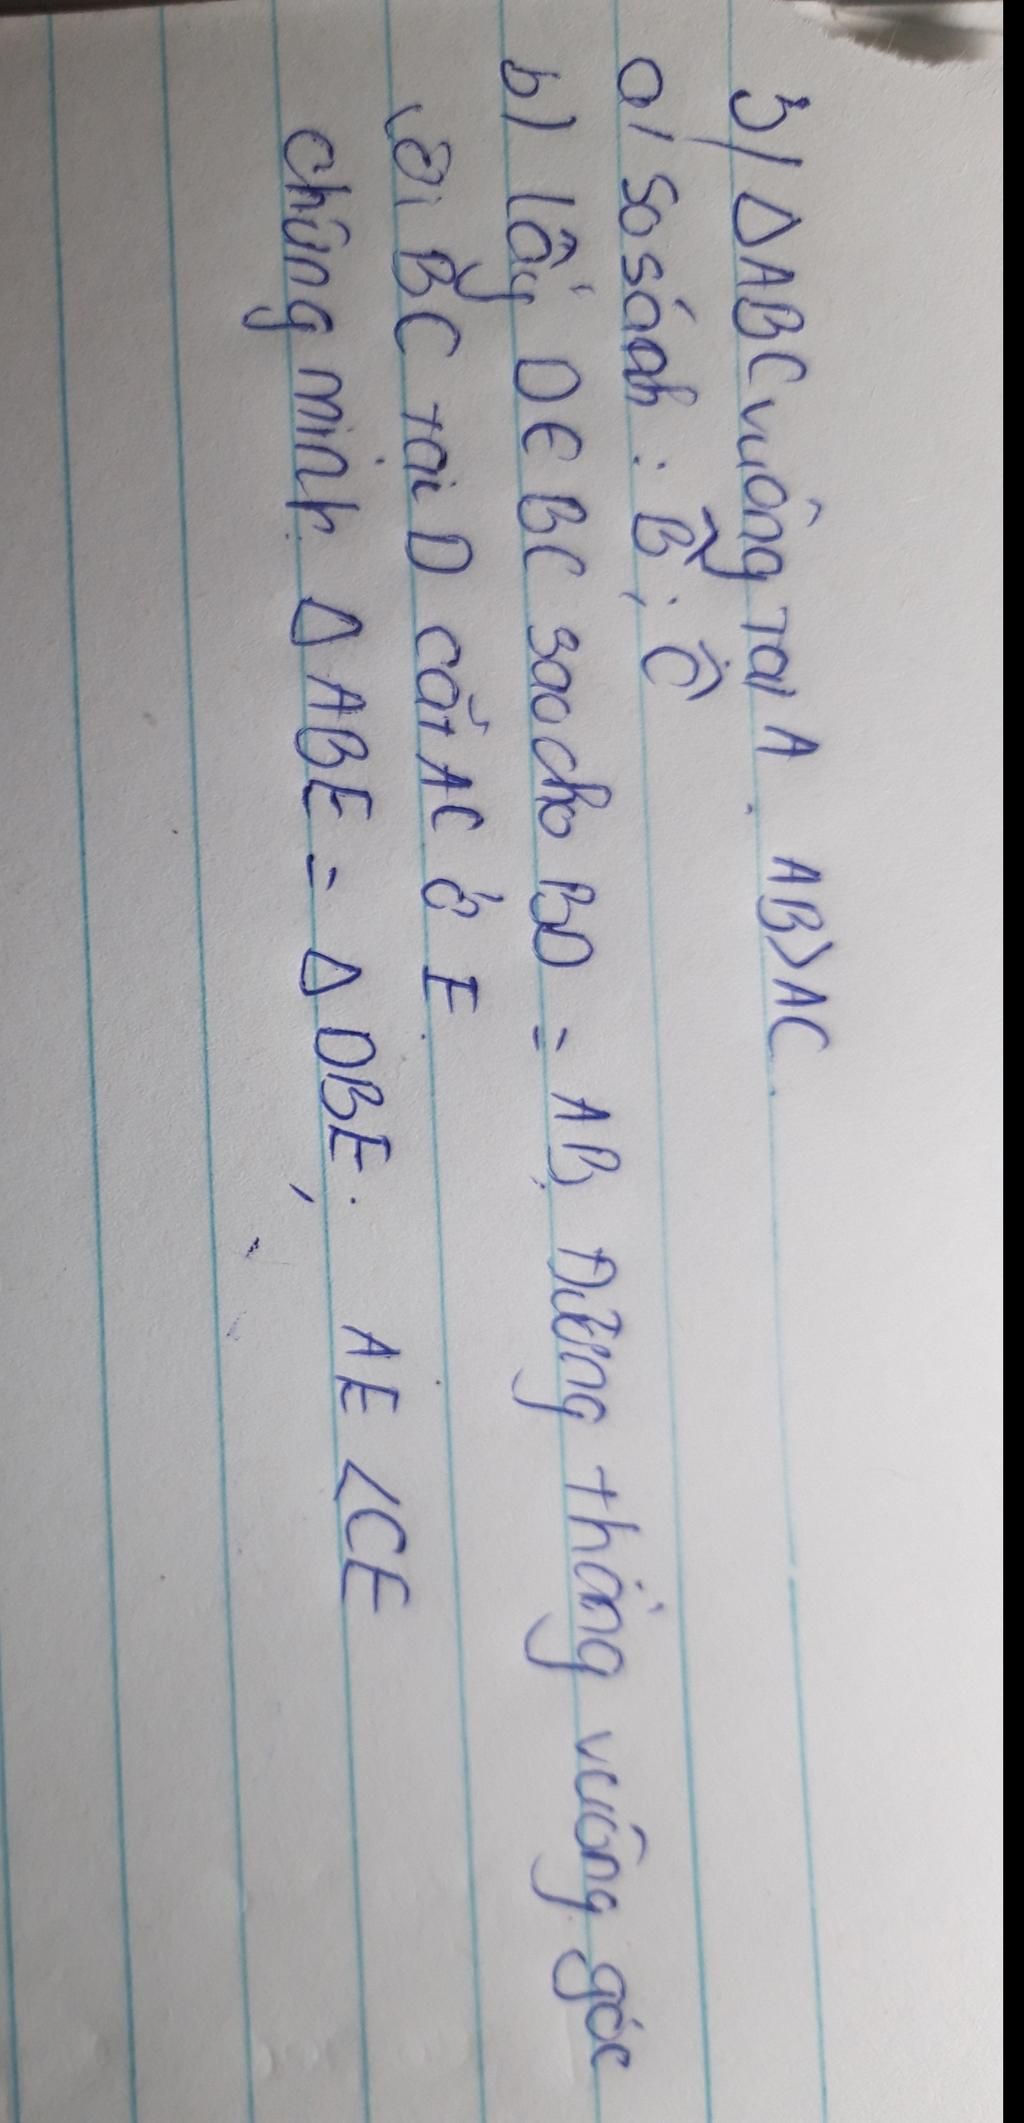 3/ ΔABC vuông tại A. AB>AC.
a/ so sánh : B̂ ; Ĉ
b) lấy D∈BC sao cho BD = AB. Đường thẳng vuông góc
với BC tại D cắt AC ở E.
chứng minh ΔABE = ΔDBE; AE <CE